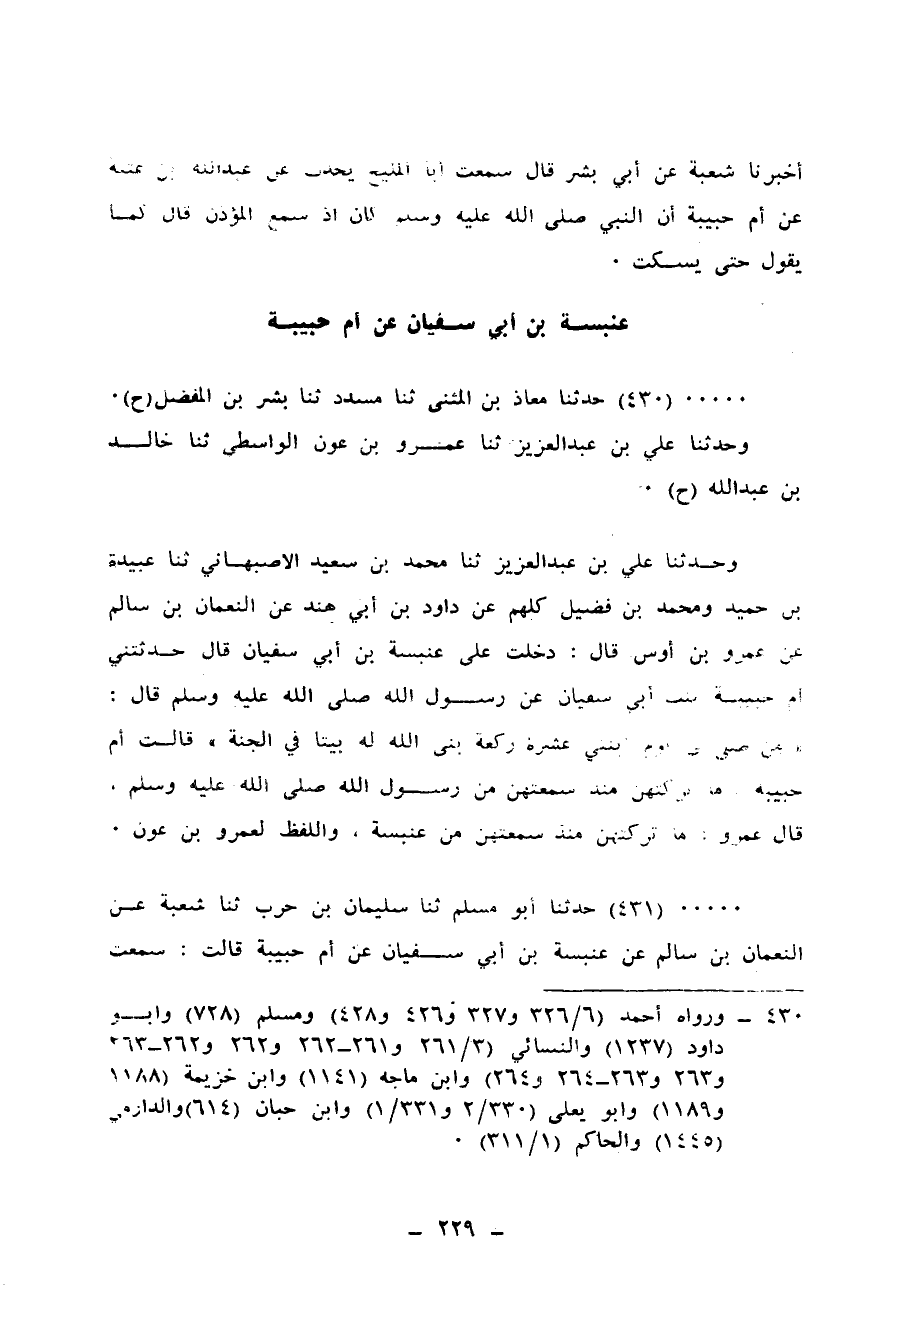 أخبرنا شعبة عن أبي بشر قال سمعت أبا المليح يحدث عن عبدالله بن عتبة
عن أم حبيبة أن النبي صلى الله عليه وسلم كان اذ سمع المؤذن قال كمـا
يقول حتى يســكت ٠
عنبســة بن أبي ســفيان عن أم حبيبــة
٠٠٠٠٠ (٤٣٠) حدثنا معاذ بن المثنى ثنا مسدد ثنا بشر بن المفضل(ح)٠
وحدثنا علي بن عبدالعزيز ثنا عمــرو بن عون الواسطى ثنا خالــد
بن عبدالله (ح) ٠
وحــدثنا علي بن عبدالعزيز ثنا محمد بن سعيد الاصبهـاني ثنا عبيدة
بن حميد ومحمد بن فضيل كلهم عن داود بن أبي هند عن النعمان بن سالم
عن عمرو بن أوس قال : دخلت على عنبسة بن أبي سفيان قال حــدثتني
أم حبيبــة بنت أبي سفيان عن رســول الله صلى الله عليه وسلم قال :
« من صلى يوم عشرة ركعة بنى الله له بيتا في الجنة » قالت أم
حبيبة ما تركتهن منذ سمعتهن من رســول الله صلى الله عليه وسلم ،
قال عمرو : ما تركتهن منذ سمعتهن من عنبسة ، واللفظ لعمرو بن عون ٠
٠٠٠٠٠ (٤٣١) حدثنا أبو مسلم ثنا سليمان بن حرب ثنا شعبة عــن
النعمان بن سالم عن عنبسة بن أبي ســفيان عن أم حبيبة قالت : سمعت
٤٣٠ ــ ورواه أحمد (٣٢٦/٦ و٣٢٧ و٤٢٦ و٤٢٨) ومسلم (٧٢٨) وابــو
داود (١٢٣٧) والنسائي (٢٦١/٣ و٢٦١ــ٢٦٢ و٢٦٢ و٢٦٢ــ٢٦٣
و٢٦٣ و٢٦٣ــ٢٦٤ و٢٦٤) وابن ماجه (١١٤١) وابن خزيمة (١١٨٨
و١١٨٩) وابو يعلى (٢/٣٣٠ و١/٣٣١) وابن حبان (٦١٤)والدارمي
(١٤٤٥) والحاكم (٣١١/١) ٠
ــ ٢٢٩ ــ